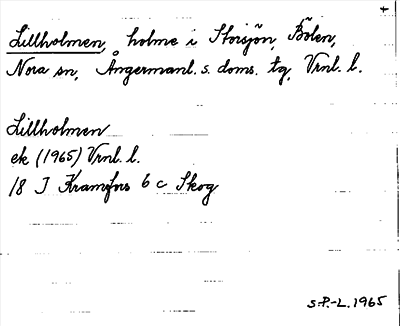 Lillholmen, holme i Storsjön, Bölen,
Nora sn, Ångermanl. s. doms. tg, Vrnl. l.
Lillholmen
ek (1965) Vrnl. l.
18 J Kramfors 6 c Skog
S.P.-L. 1965